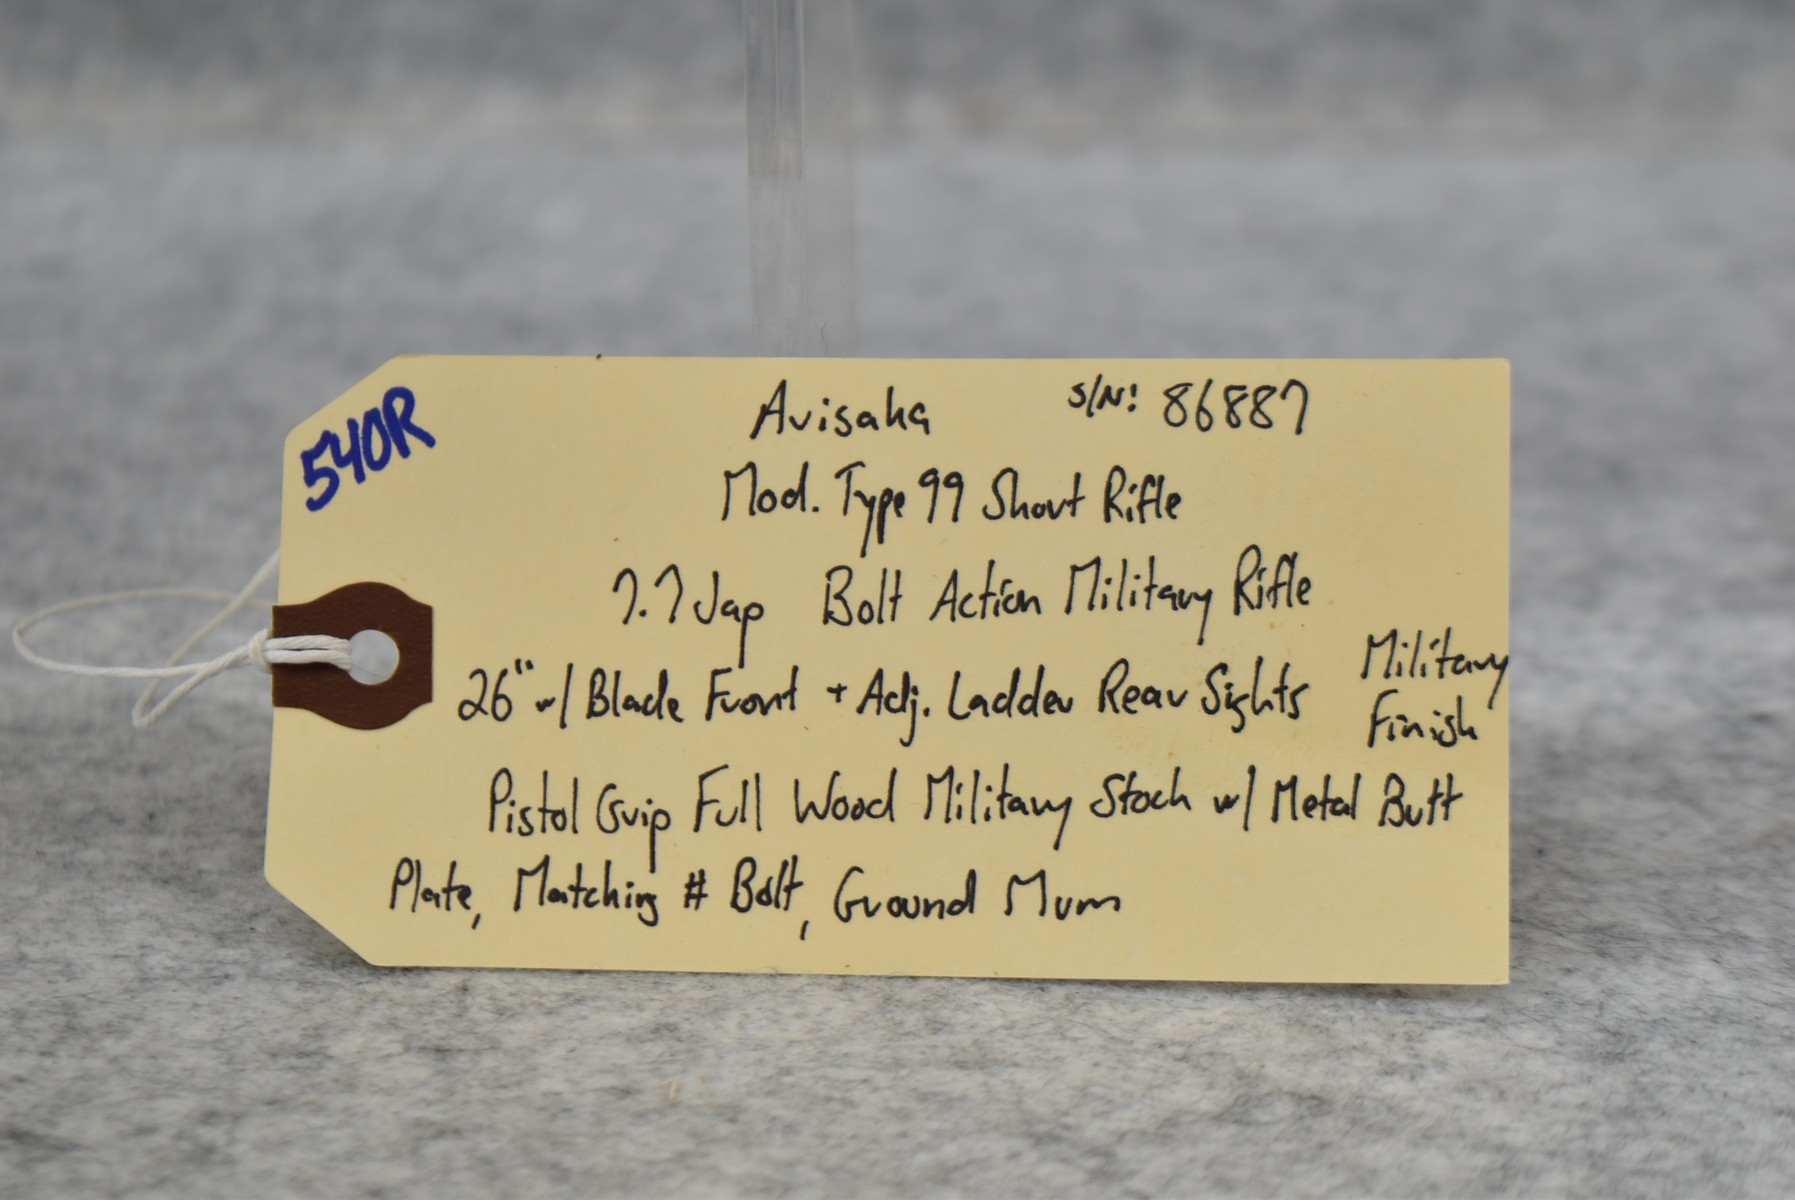 540R
Arisaka S/N: 86887
Mod. Type 99 Short Rifle
7.7 Jap Bolt Action Military Rifle
26" w/ Blade Front + Adj. Ladder Rear Sights Military Finish
Pistol Grip Full Wood Military Stock w/ Metal Butt
Plate, Matching # Bolt, Ground Mum